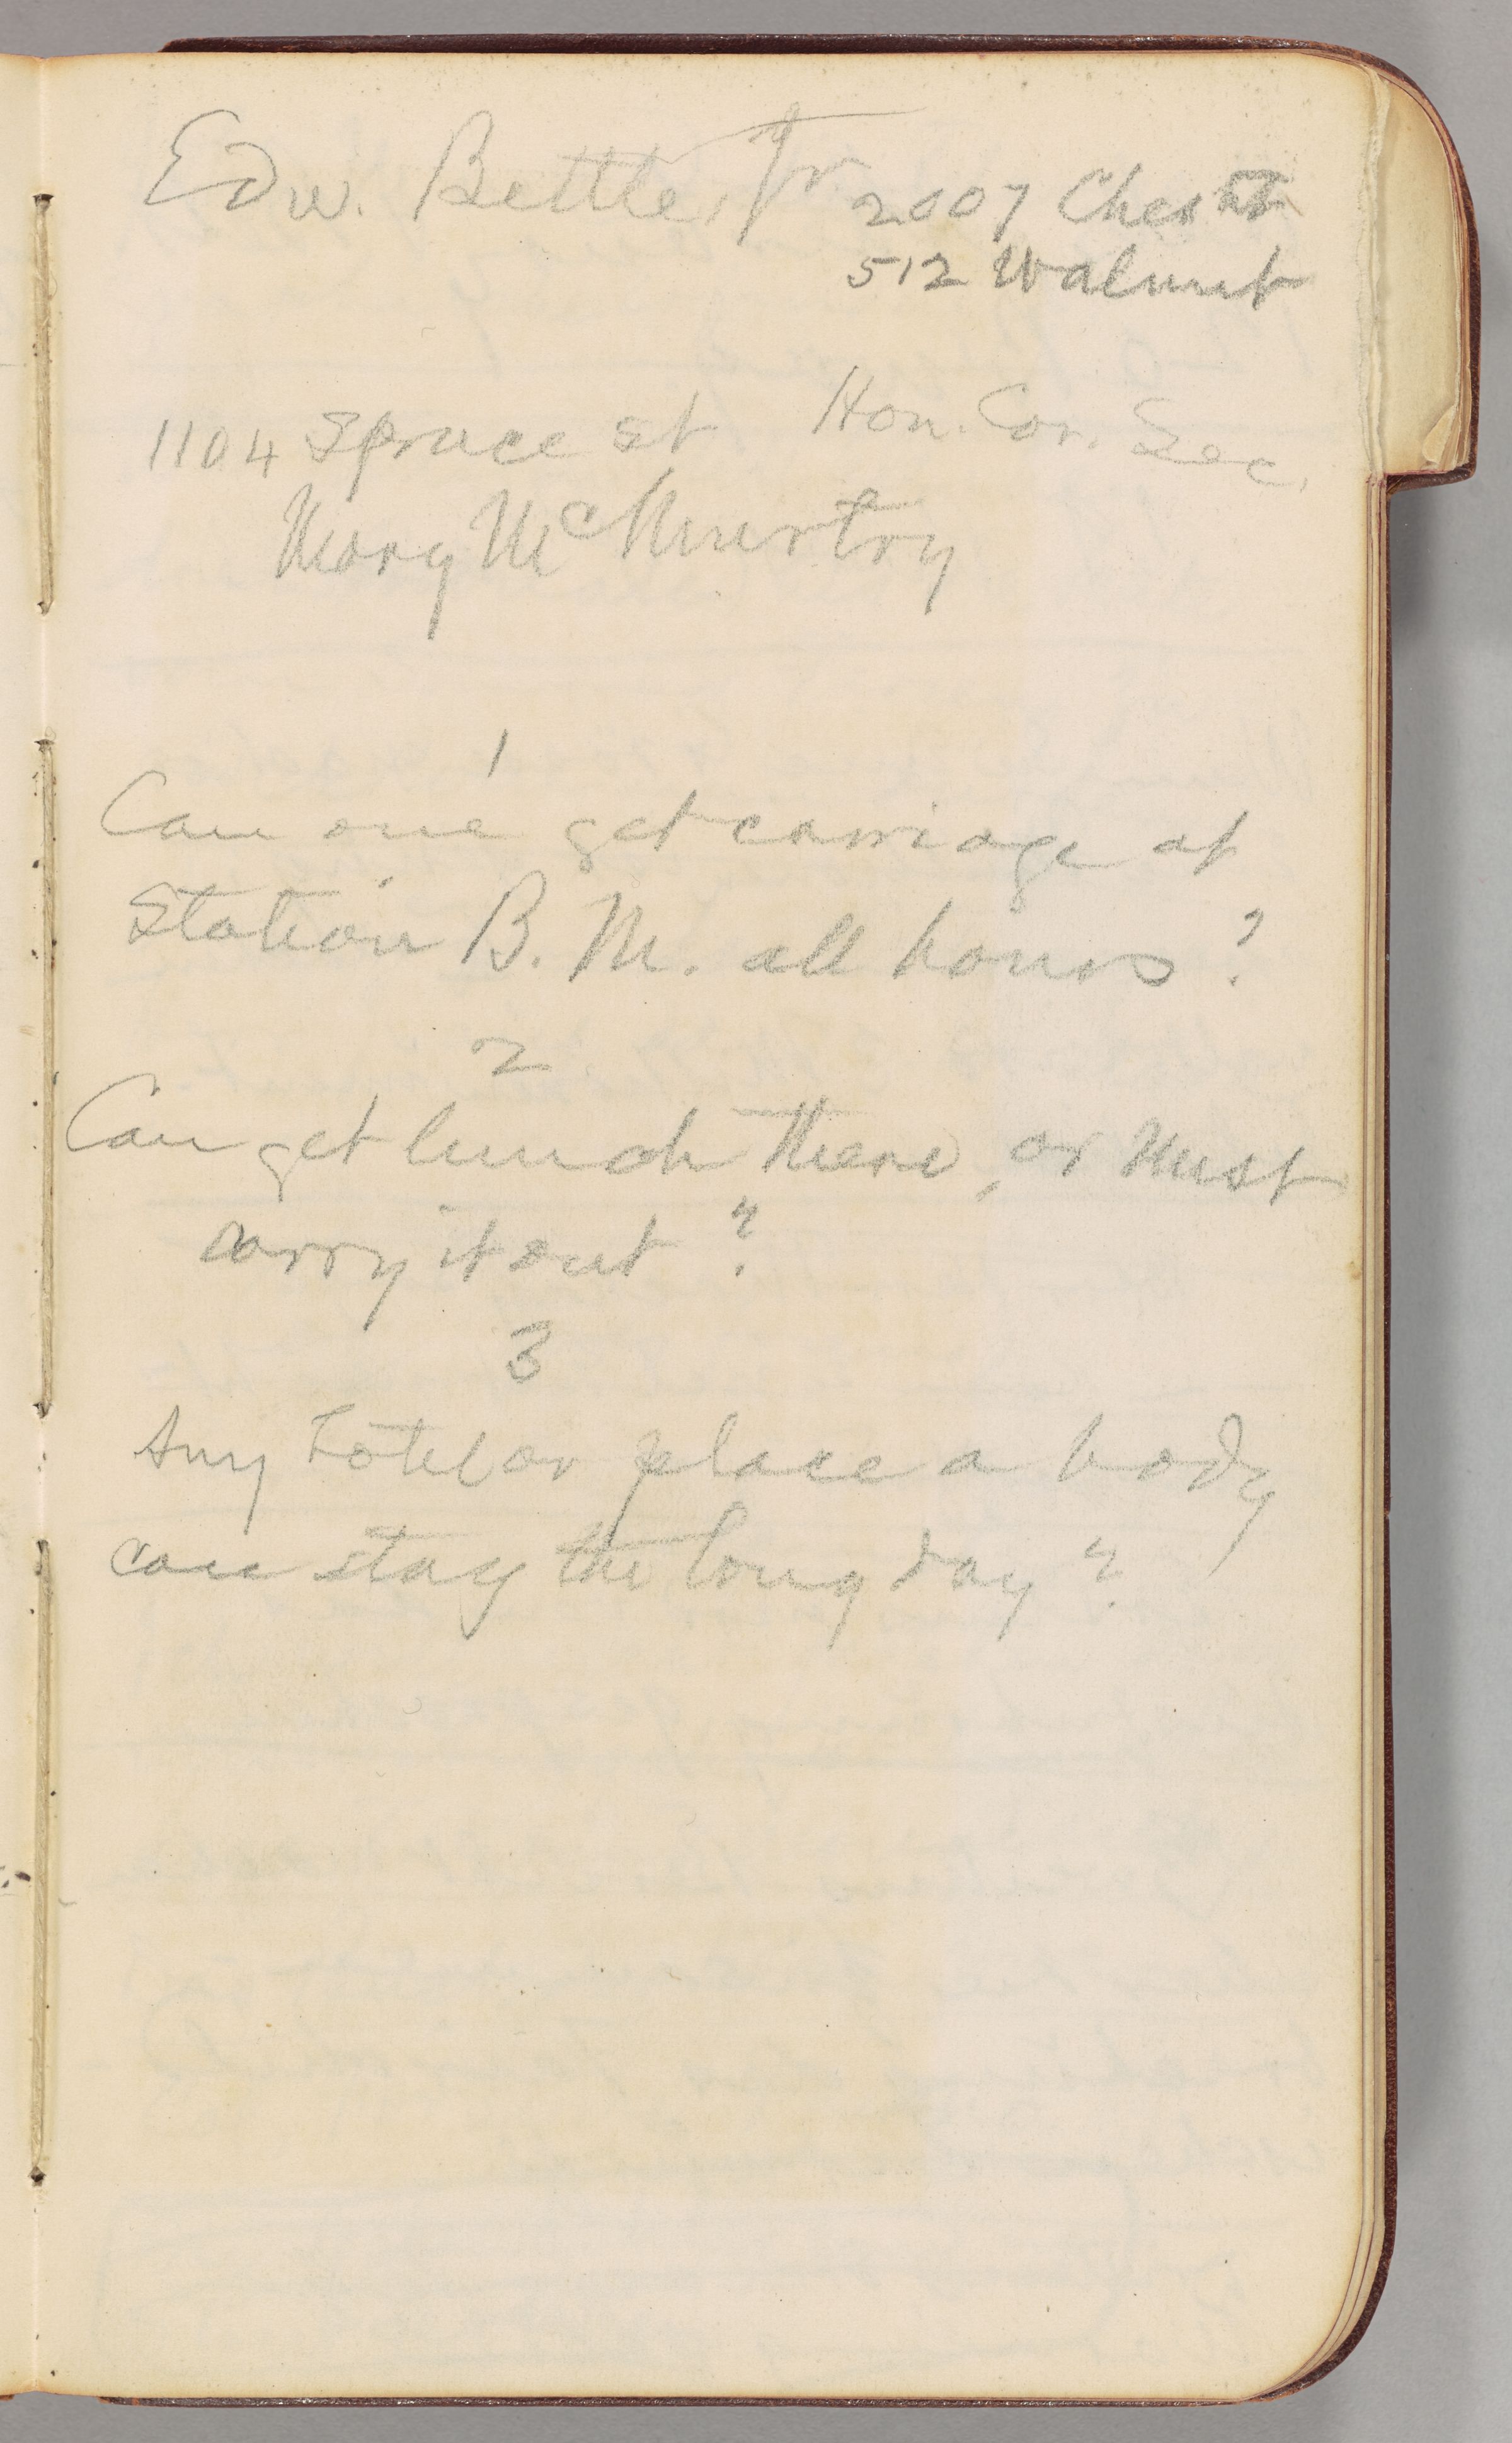 Edw. Bettle, Jr 2007 Chestnt
512 Walnut
1104 Spruce st Hon. Cor. Sec.
Mary McMurtry
1
Can one get carriage at
Station B. M. all hours?
2
Can get lunch there, or must
carry it out?
3
Any hotel or place a body
can stay the long day?